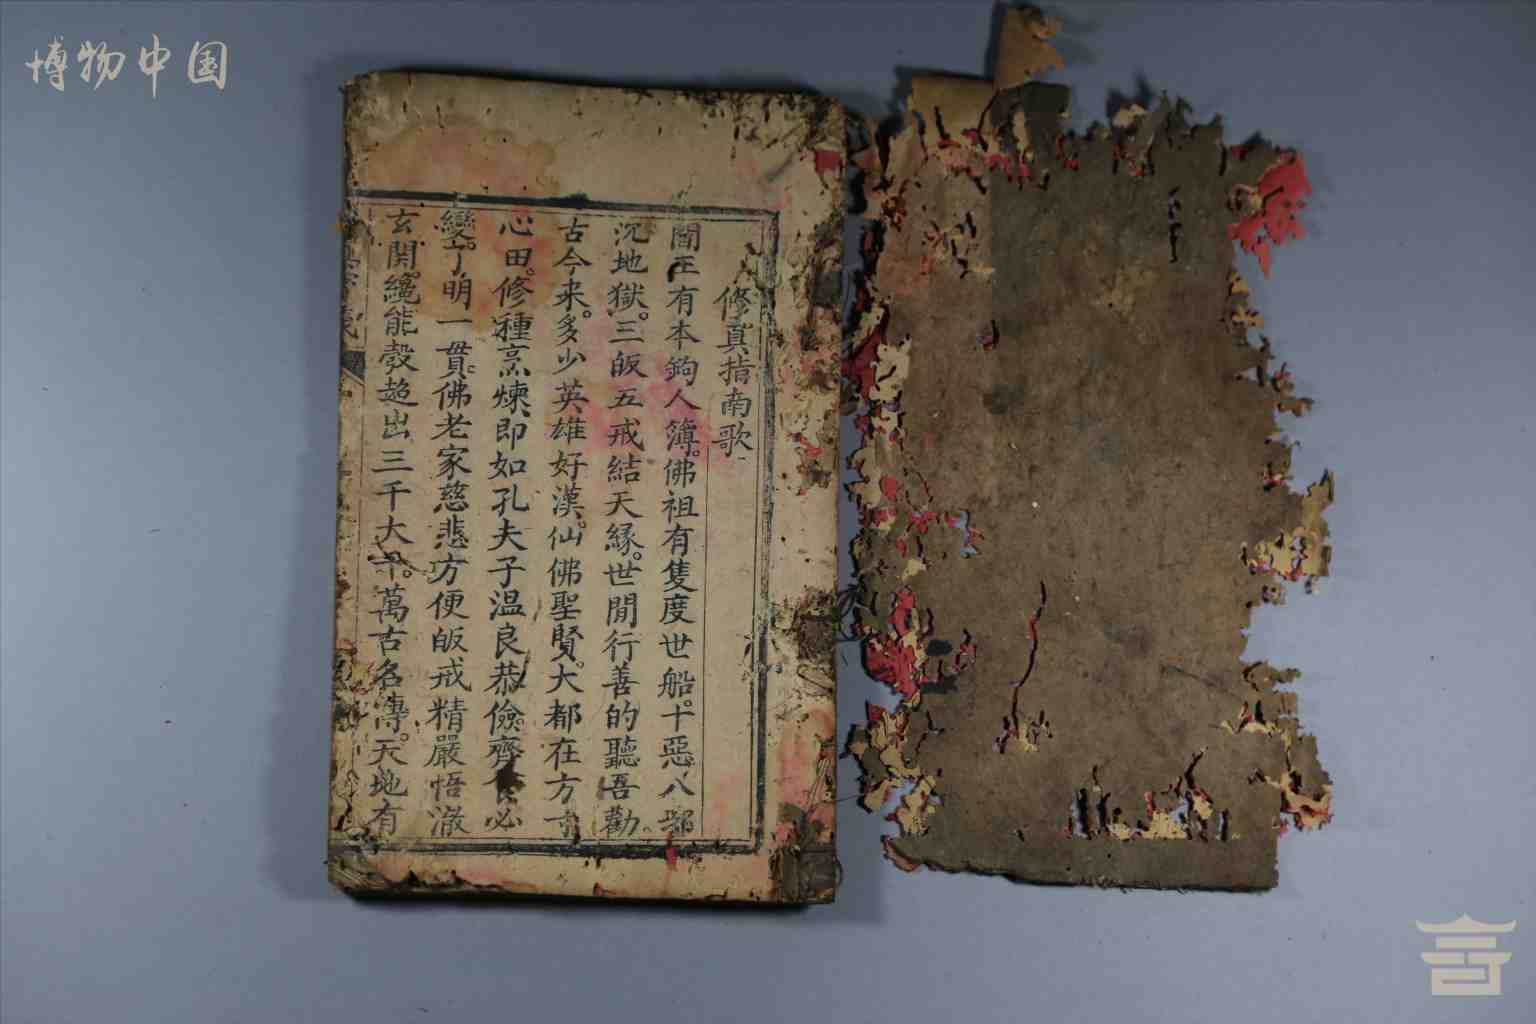 博物中国
修真指南歌
閻王有本鉤人簿。佛祖有隻度世船。十惡八邪
沉地獄。三皈五戒結天緣。世間行善的聽吾勸。
古今来。多少英雄好漢。仙佛聖賢。大都在方寸
心田。修種烹煉、即如孔夫子温良恭儉齊 必
變。了明一貫。佛老家慈悲方便皈戒精嚴悟澈
玄関。纔能彀超出三千大千。萬古名傳。天地有